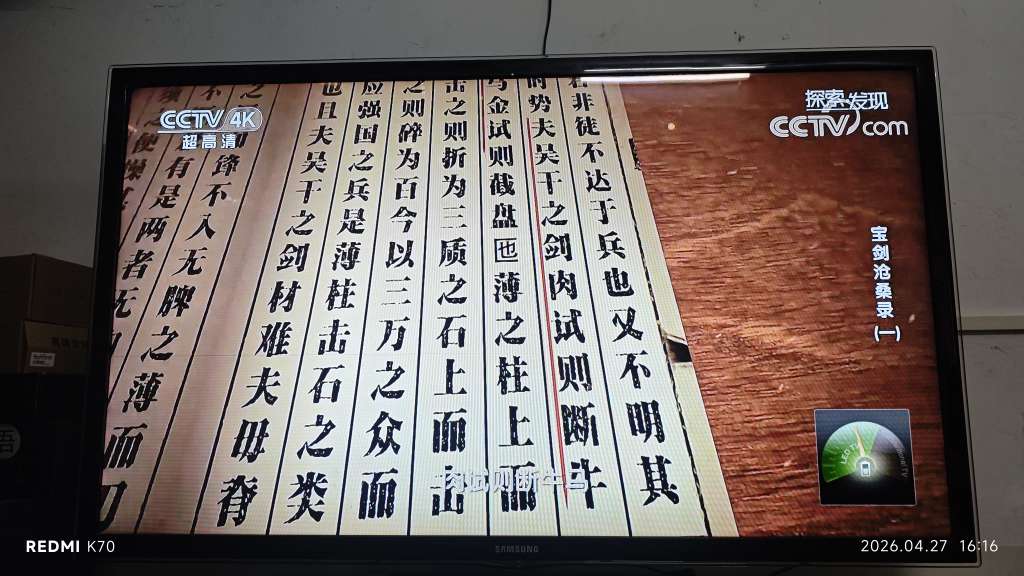 CCTV 4K
超高清
探索·发现
CCTV com
宝剑沧桑录
(一)
非徒不达于兵也又不明其
时势夫吴干之剑肉试则断牛
马金试则截盘也薄之柱上而
击之则折为三质之石上而击
之则碎为百今以三万之众而
应强国之兵是薄柱击石之类
也且夫吴干之剑材难夫毋脊
之
锋不入无脾之薄
不
有是两者无
之便操
而刀
肉试则断牛马
SAMSUNG
REDMI K70
2026.04.27 16:16